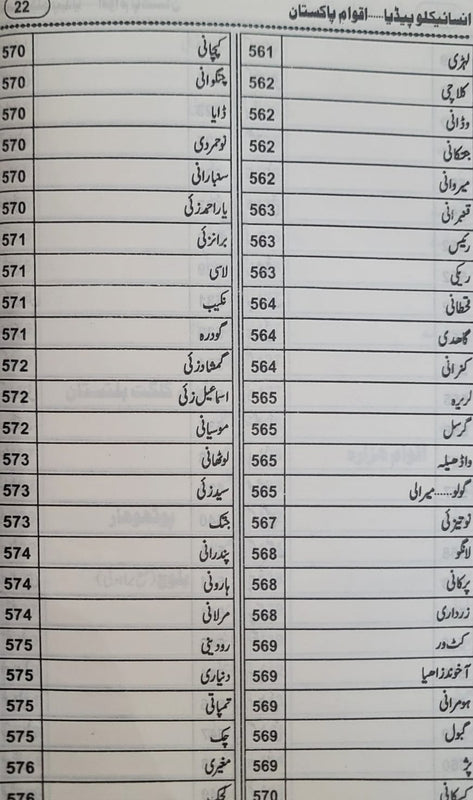 انسائیکلوپیڈیا.....اقوام پاکستان 22
لہڑی 561
کلاچی 562
وڈانی 562
562
میروانی 562
قنبرانی 563
رئیس 563
ریکی 563
قحطانی 564
گاھدی 564
کنرانی 564
کریرہ 565
گرسل 565
واڈھیلہ 565
گولو......میرالی 565
نوتیزئی 567
لانگو 568
پرکانی 568
زرداری 568
کٹ ور 569
آخوندزاھیا 569
ہومرانی 569
گبول 569
پڑ 569
570
کیچانی 570
چنگوانی 570
ڈایا 570
نوحمردی 570
سنبارانی 570
یاراحمدزئی 570
برانزئی 571
لاسی 571
نکیب 571
گودرہ 571
گمشادزئی 572
اسماعیل زئی 572
موسیانی 572
لوٹھانی 573
سیدزئی 573
جتک 573
پندرانی 574
ہارونی 574
مرلانی 574
رودینی 575
دنیاری 575
تمپانی 575
چک 575
مغیری 576
576